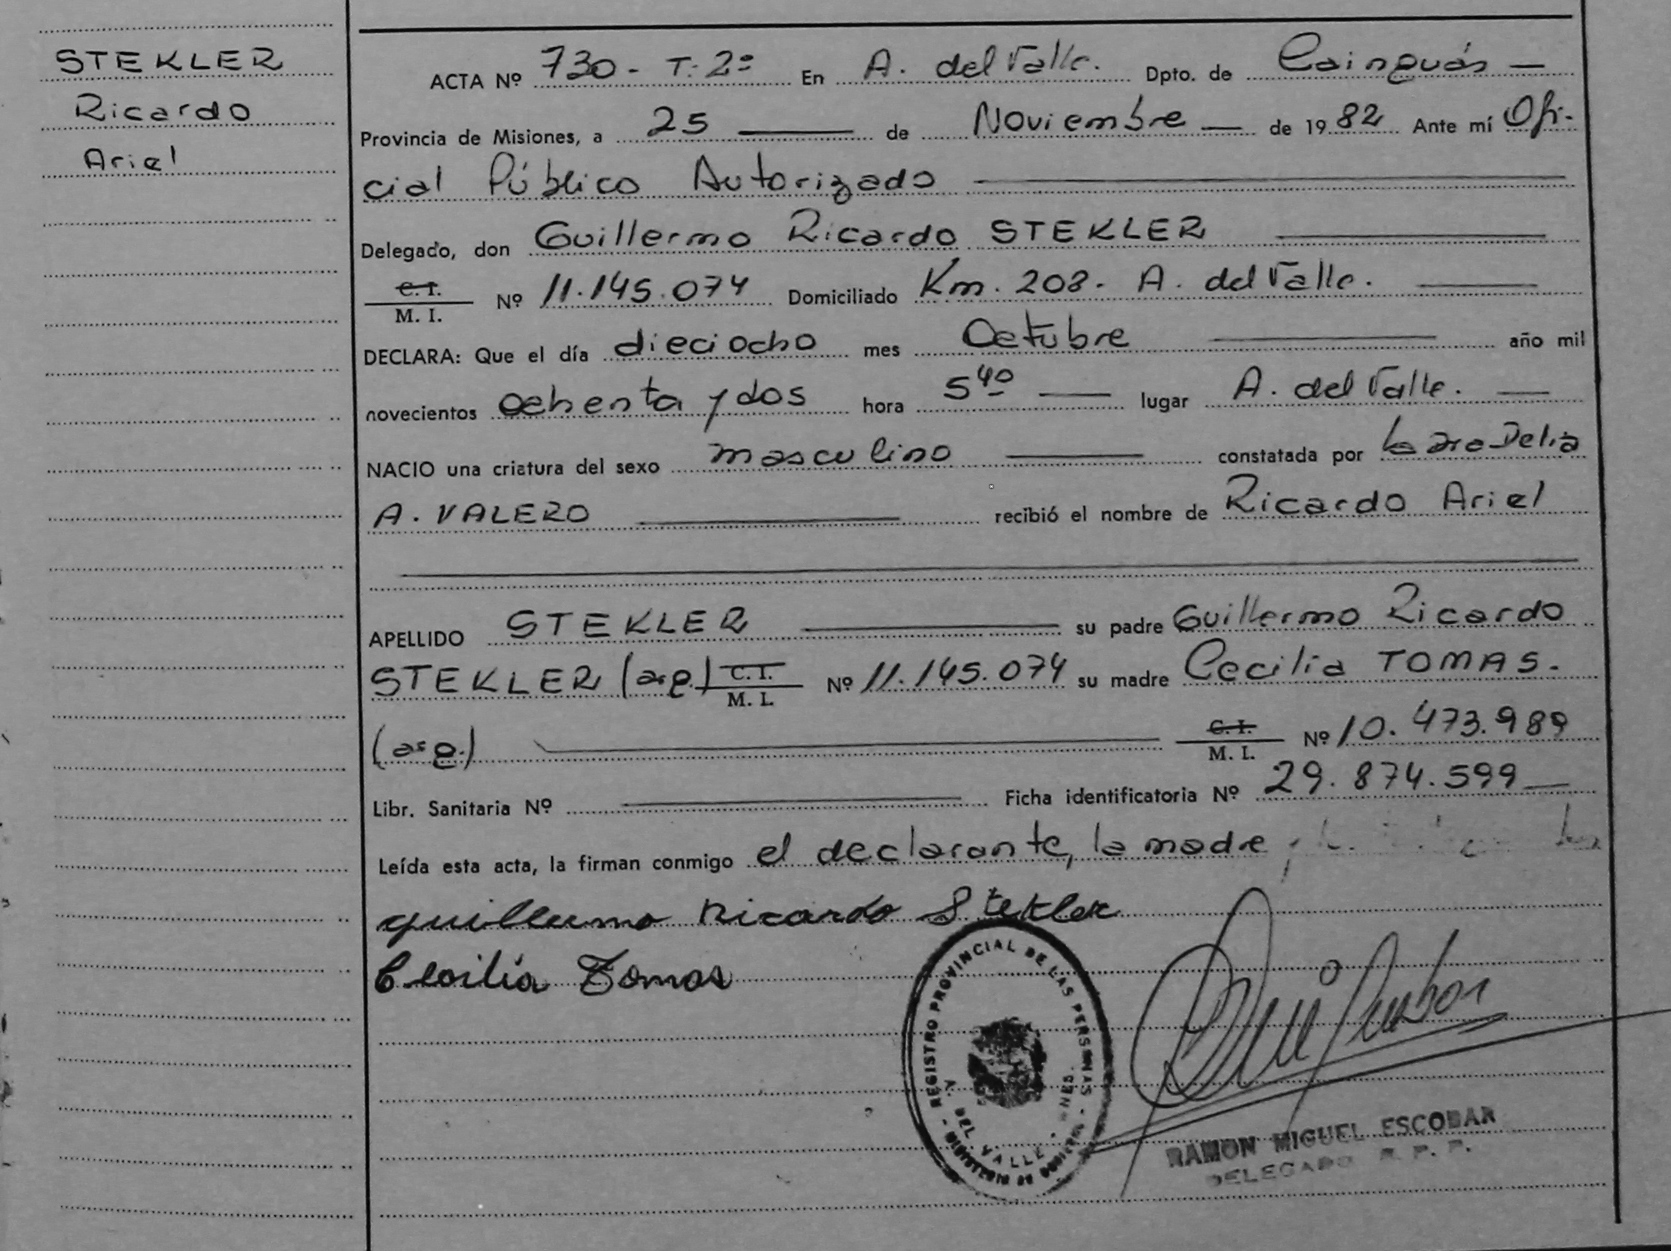 STEKLER
Ricardo
Ariel
ACTA Nº 730 - T. 2º En A. del Valle. Dpto. de Cainguás —
Provincia de Misiones, a 25 — de Noviembre — de 1982 Ante mí Ofi-
cial Público Autorizado —
Delegado, don Guillermo Ricardo STEKLER —
C. I. / M. I. Nº 11.145.074 Domiciliado Km. 208 - A. del Valle. —
DECLARA: Que el día dieciocho mes Octubre — año mil
novecientos ochenta y dos hora 5 40 — lugar A. del Valle. —
NACIO una criatura del sexo masculino — constatada por Delia
A. VALERO — recibió el nombre de Ricardo Ariel
—
APELLIDO STEKLER — su padre Guillermo Ricardo
STEKLER (arg.) C. I. / M. I. Nº 11.145.074 su madre Cecilia TOMAS.
(arg.) — C. I. / M. I. Nº 10.473.989
Libr. Sanitaria Nº — Ficha identificatoria Nº 29.874.599 —
Leída esta acta, la firman conmigo el declarante, la madre
Guillermo Ricardo Stekler
Cecilia Tomas
REGISTRO PROVINCIAL DE LAS PERSONAS
A. DEL VALLE - MNES.
MINISTERIO DE GOBIERNO
RAMON MIGUEL ESCOBAR
DELEGADO R. P. P.